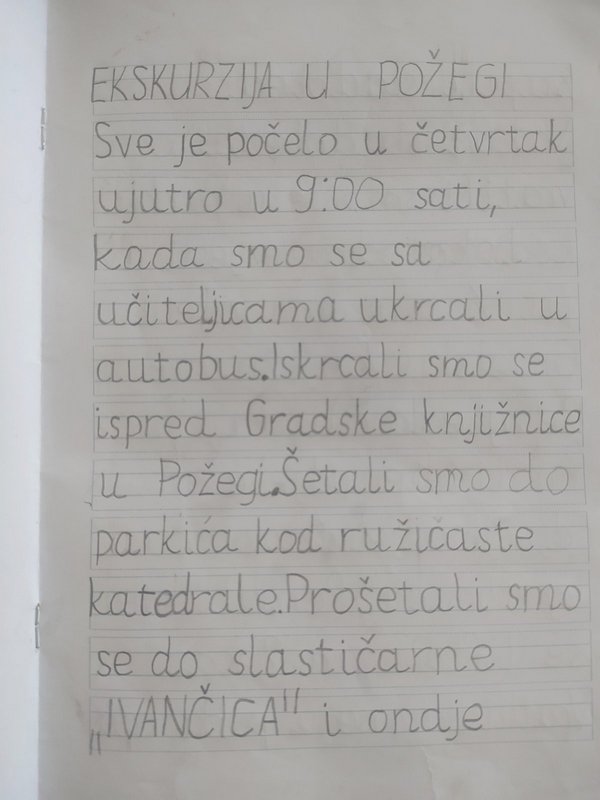 EKSKURZIJA U POŽEGI
Sve je počelo u četvrtak
ujutro u 9:00 sati,
kada smo se sa
učiteljicama ukrcali u
autobus.Iskrcali smo se
ispred Gradske knjižnice
u Požegi.Šetali smo do
parkića kod ružičaste
katedrale.Prošetali smo
se do slastičarne
„IVANČICA" i ondje